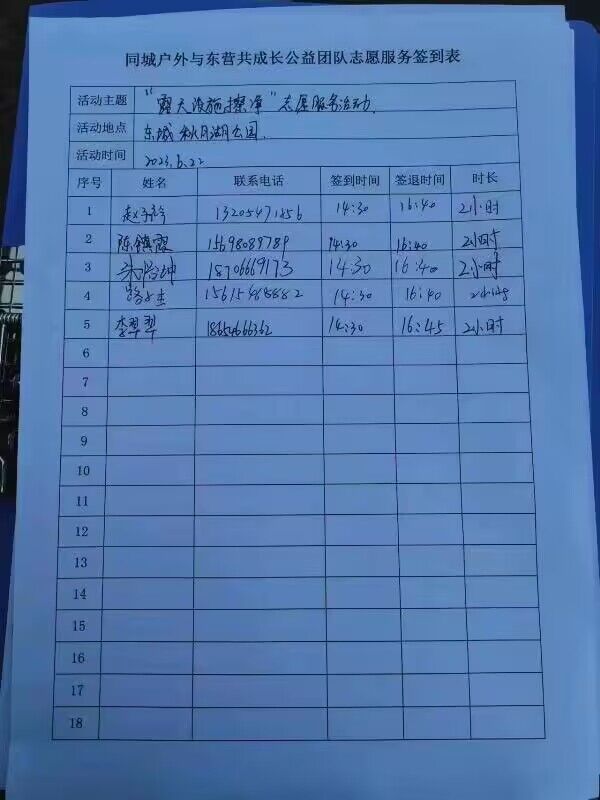 同城户外与东营共成长公益团队志愿服务签到表
活动主题 "露天设施擦净"志愿服务活动.
活动地点 东城秋月湖公园.
活动时间 2023.6.22
序号 姓名 联系电话 签到时间 签退时间 时长
1 13205471856 14:30 16:40 2小时
2 陈镇霞 15698089789 14:30 16:40 2小时
3 18706669173 14:30 16:40 2小时
4 14:30 16:40 2小时
5 李翠翠 18654666362 14:30 16:45 2小时
6
7
8
9
10
11
12
13
14
15
16
17
18